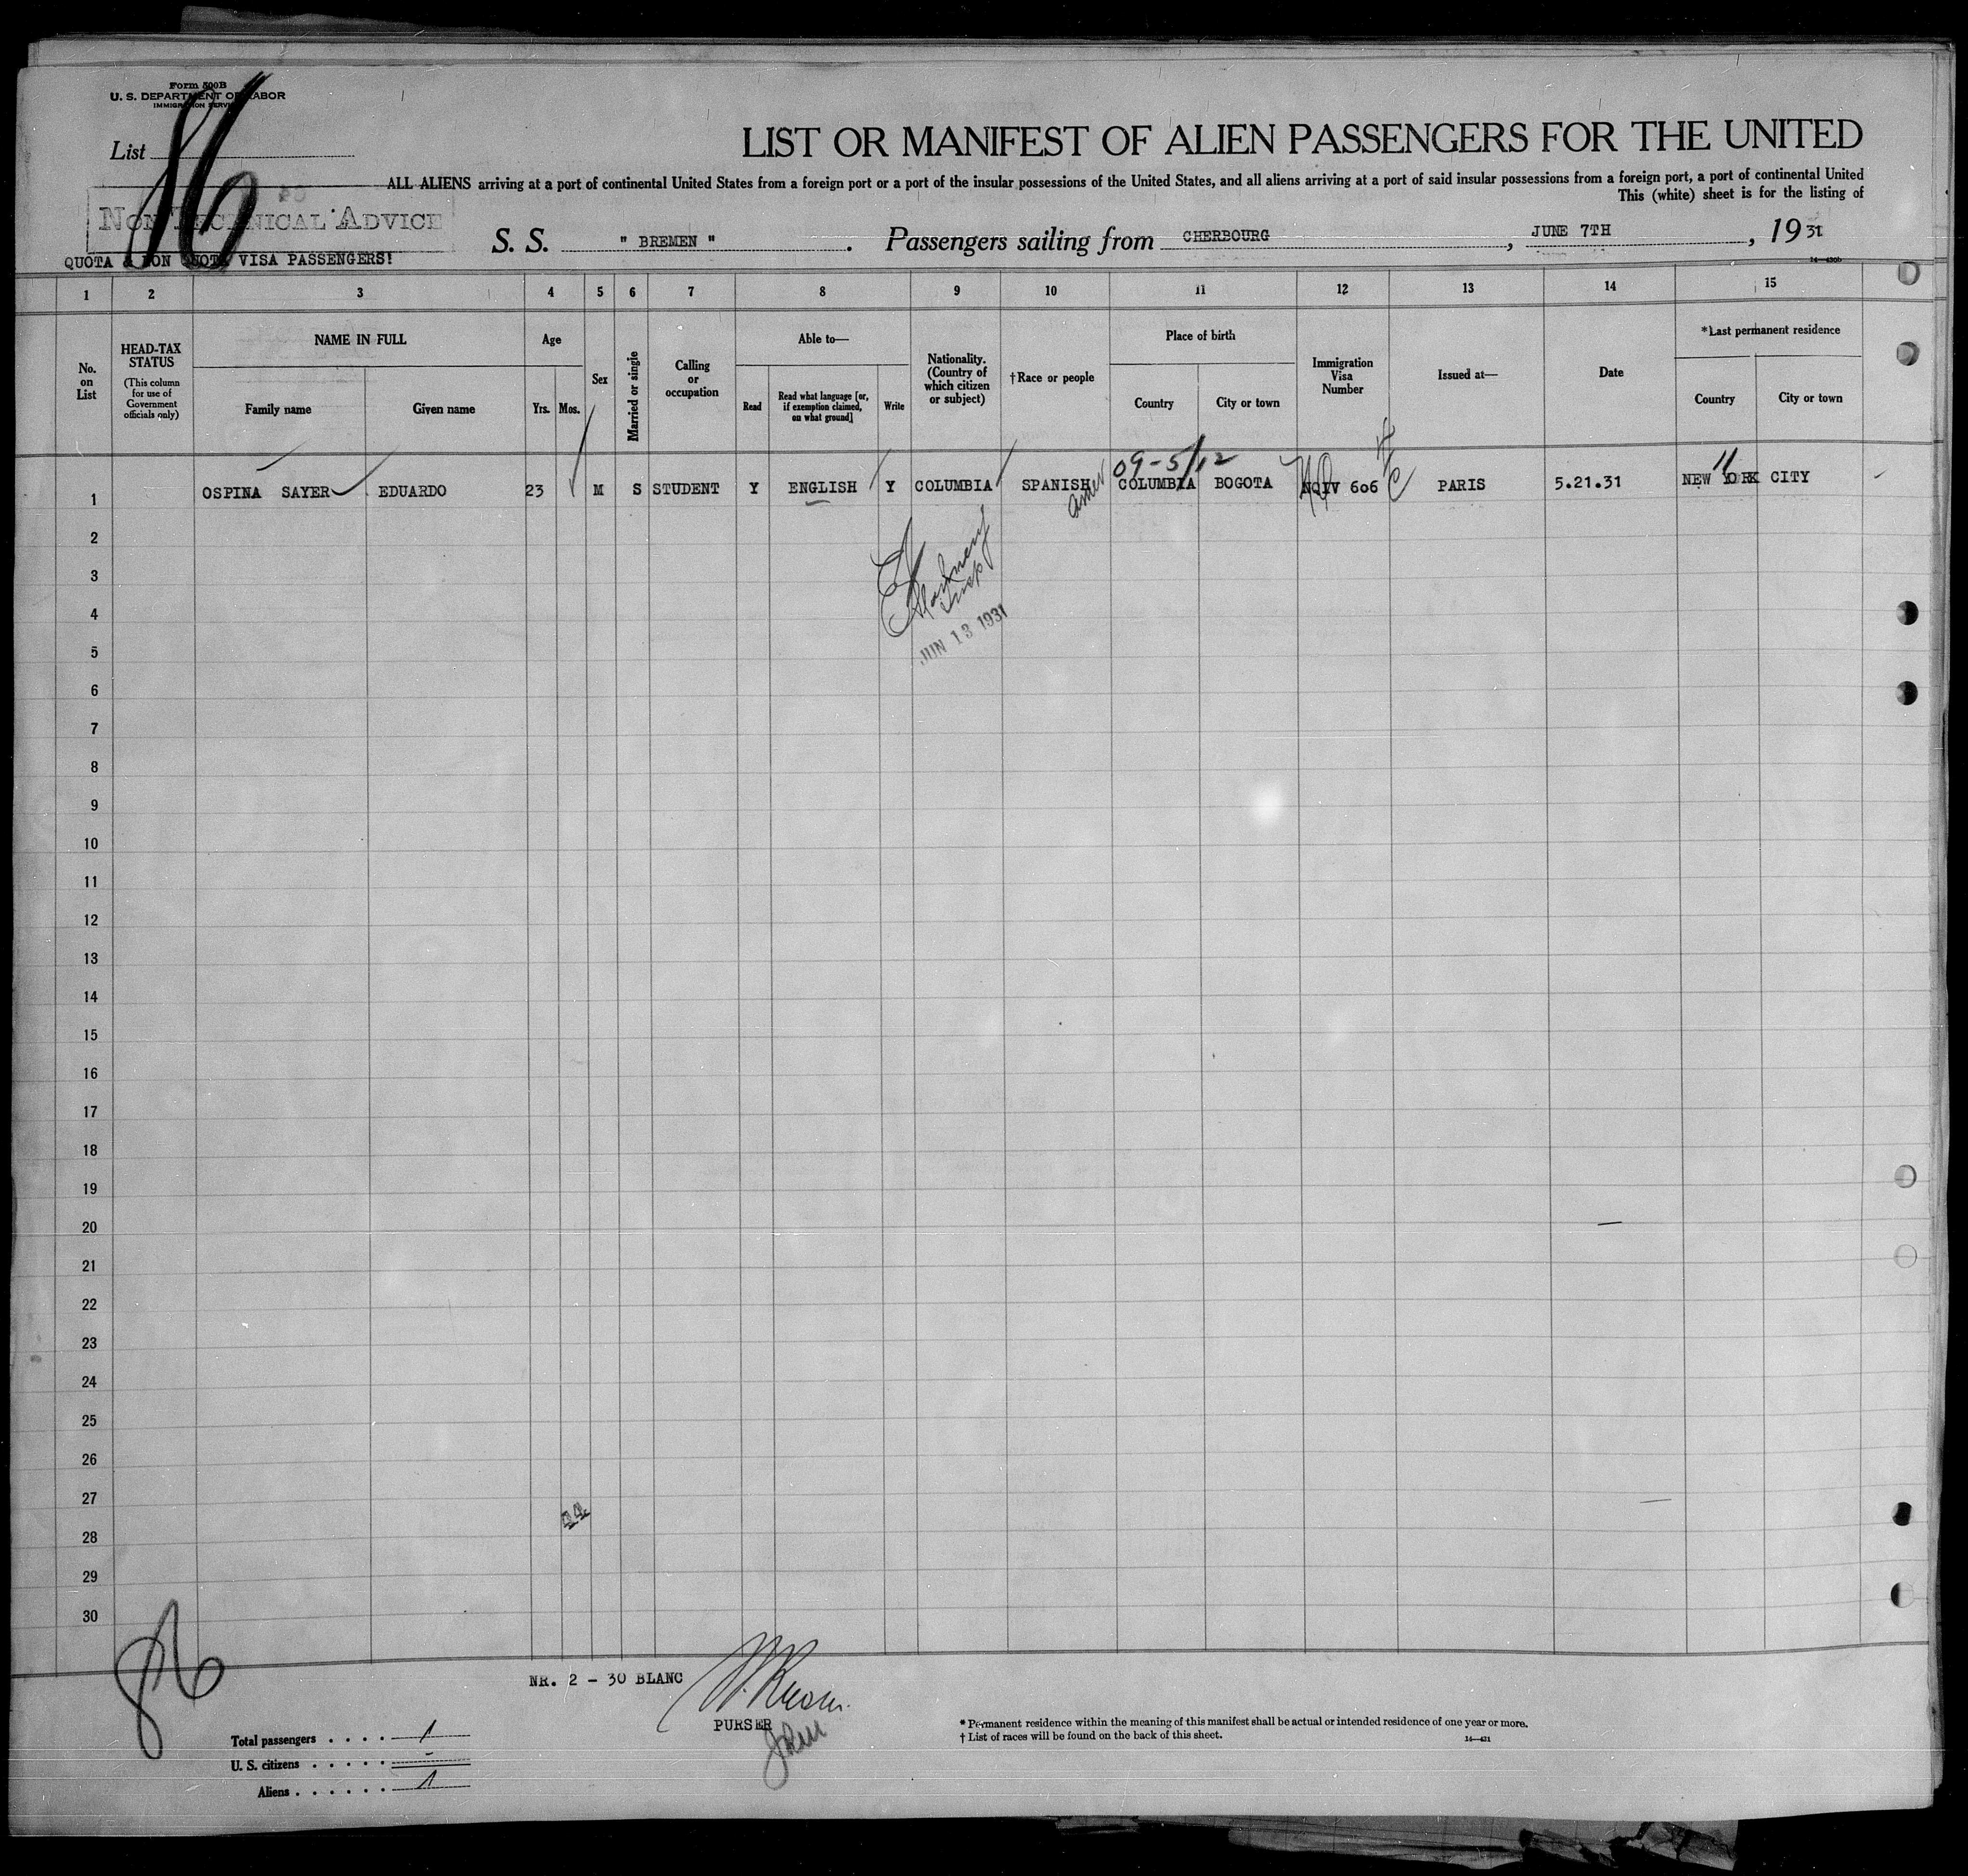 Form 500B
U. S. DEPARTMENT OF LABOR
IMMIGRATION SERVICE
List
86
LIST OR MANIFEST OF ALIEN PASSENGERS FOR THE UNITED
ALL ALIENS arriving at a port of continental United States from a foreign port or a port of the insular possessions of the United States, and all aliens arriving at a port of said insular possessions from a foreign port, a port of continental United
This (white) sheet is for the listing of
NON TECHNICAL ADVICE
S. S. " BREMEN " . Passengers sailing from CHERBOURG , JUNE 7TH , 1931
QUOTA & NON QUOTA VISA PASSENGERS!
1 2 3 4 5 6 7 8 9 10 11 12 13 14 15
No. on List
HEAD-TAX STATUS
(This column for use of Government officials only)
NAME IN FULL
Family name Given name
Age
Yrs. Mos.
Sex
Married or single
Calling or occupation
Able to—
Read
Read what language [or, if exemption claimed, on what ground]
Write
Nationality. (Country of which citizen or subject)
†Race or people
Place of birth
Country City or town
Immigration Visa Number
Issued at—
Date
*Last permanent residence
Country City or town
09-5/12
1 OSPINA SAYER EDUARDO 23 M S STUDENT Y ENGLISH Y COLUMBIA SPANISH COLUMBIA BOGOTA NQIV 606 PARIS 5.21.31 NEW YORK CITY
amer
2
3
4
JUN 13 1931
5
6
7
8
9
10
11
12
13
14
15
16
17
18
19
20
21
22
23
24
25
26
27
28
29
30
86
NR. 2 - 30 BLANC
PURSER
Total passengers . . . . 1
U. S. citizens . . . . . -
Aliens . . . . . . 1
* Permanent residence within the meaning of this manifest shall be actual or intended residence of one year or more.
† List of races will be found on the back of this sheet.
14—431